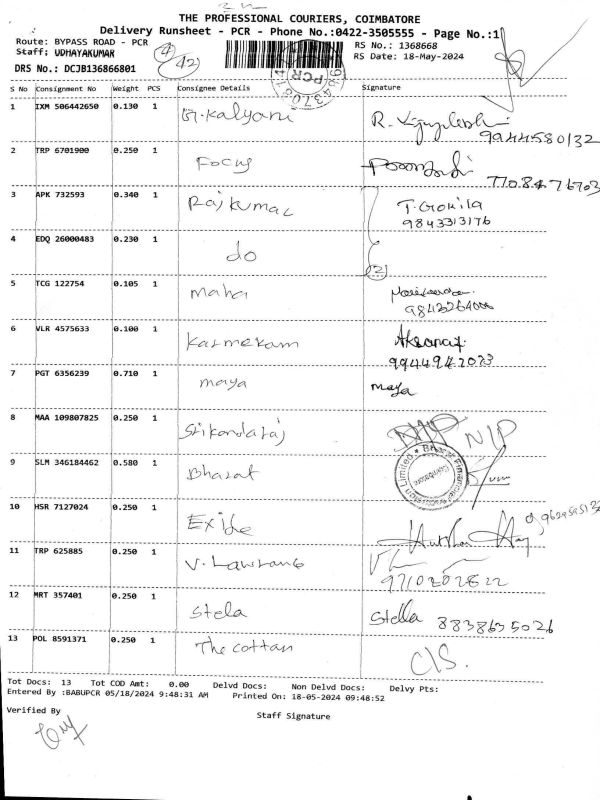 THE PROFESSIONAL COURIERS, COIMBATORE
Delivery Runsheet - PCR - Phone No.:0422-3505555 - Page No.:1
Route: BYPASS ROAD - PCR
Staff: UDHAYAKUMAR
RS No.: 1368668
RS Date: 18-May-2024
DRS No.: DCJB136866801
42
PCR
S No Consignment No Weight PCS Consignee Details Signature
1 IXM 506442650 0.130 1 Kalyani
9944580132
2 TRP 6701900 0.250 1 Focus
7708476703
3 APK 732593 0.340 1 Rajkumar T. Gokila
9843313176
4 EDQ 26000483 0.230 1 do
(2)
5 TCG 122754 0.105 1 maha
6 VLR 4575633 0.100 1
7 PGT 6356239 0.710 1 maya maya
8 MAA 109807825 0.250 1 N/P
9 SLM 346184462 0.580 1 Bharat
10 HSR 7127024 0.250 1 Exide
11 TRP 625885 0.250 1 V. Lawrans
12 MRT 357401 0.250 1 Stela Stella 8838635026
13 POL 8591371 0.250 1 The cottan C/S.
Tot Docs: 13 Tot COD Amt: 0.00 Delvd Docs: Non Delvd Docs: Delvy Pts:
Entered By :BABUPCR 05/18/2024 9:48:31 AM Printed On: 18-05-2024 09:48:52
Verified By
Staff Signature